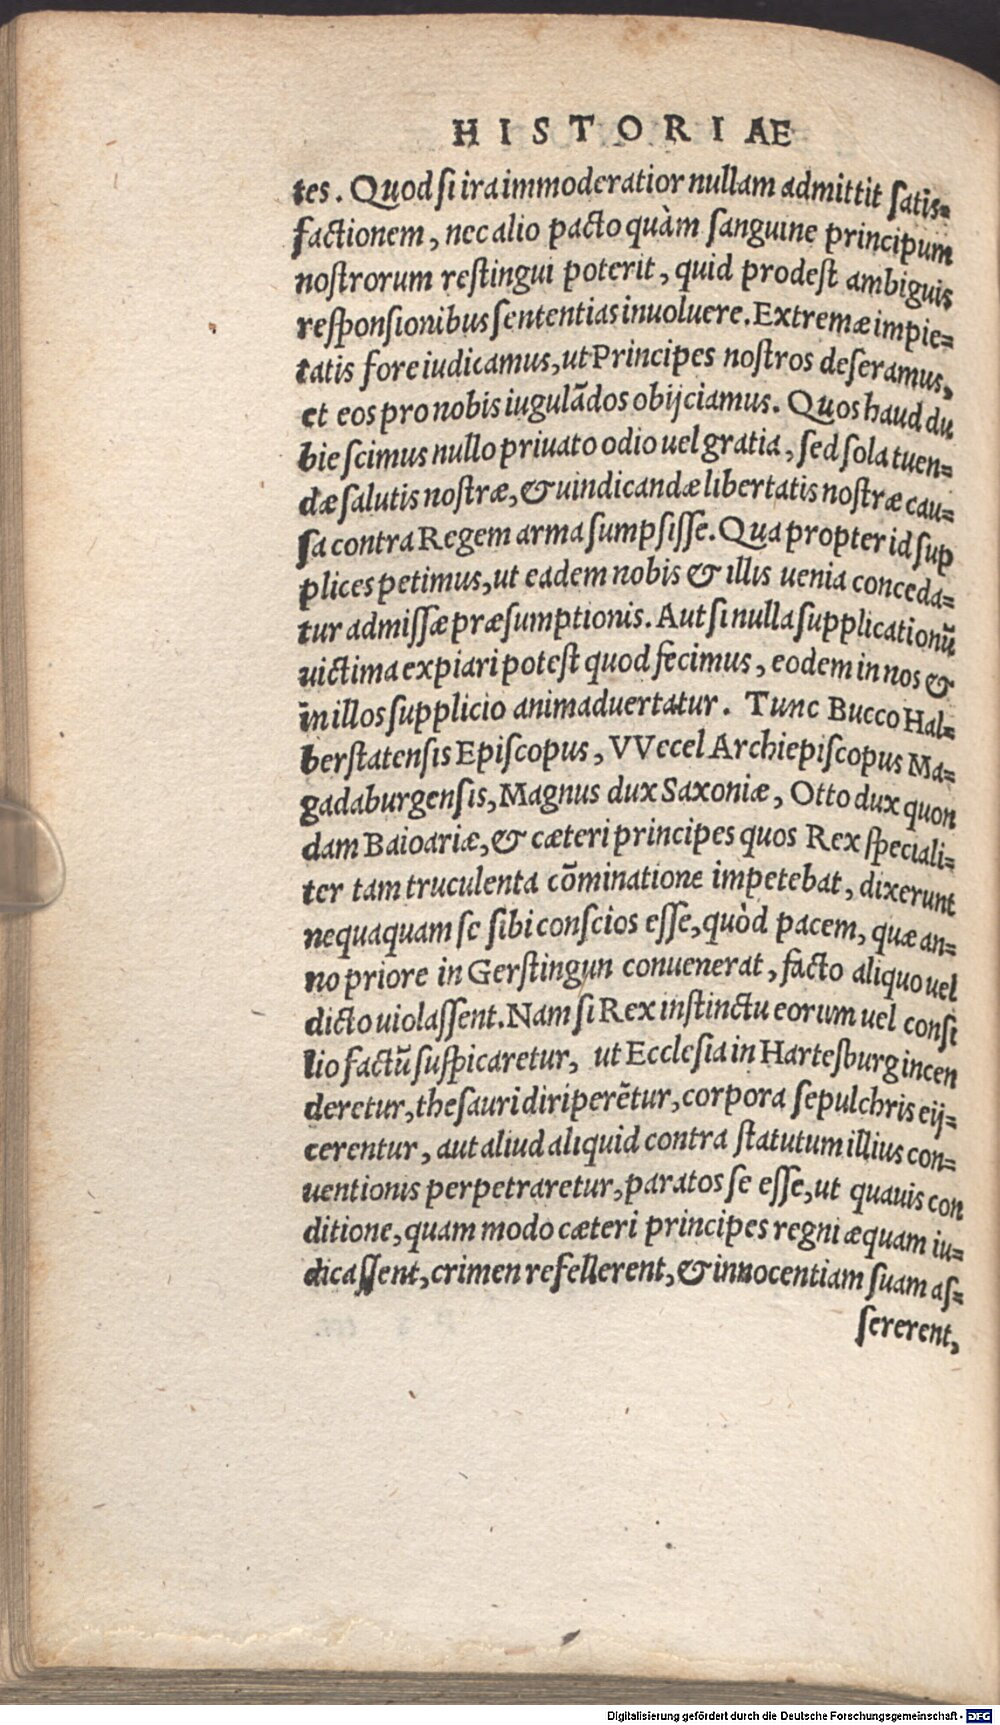 HISTORIAE
tes. Quod si ira immoderatior nullam admittit satis=
factionem, nec alio pacto quàm sanguine principum
nostrorum restingui poterit, quid prodest ambiguis
responsionibus sententias inuoluere. Extremæ impie=
tatis fore iudicamus, ut Principes nostros deseramus,
et eos pro nobis iugulādos obijciamus. Quos haud du
bie scimus nullo priuato odio uel gratia, sed sola tuen=
dæ salutis nostræ, & uindicandæ libertatis nostræ cau=
sa contra Regem arma sumpsisse. Qua propter id sup
plices petimus, ut eadem nobis & illis uenia conceda=
tur admissæ præsumptionis. Aut si nulla supplicationũ
uictima expiari potest quod fecimus, eodem in nos &
in illos supplicio animaduertatur. Tunc Bucco Hal=
berstatensis Episcopus, VVecel Archiepiscopus Ma=
gadaburgensis, Magnus dux Saxoniæ, Otto dux quon
dam Baioariæ, & cæteri principes quos Rex speciali=
ter tam truculenta cōminatione impetebat, dixerunt
nequaquam se sibi conscios esse, quòd pacem, quæ an=
no priore in Gerstingun conuenerat, facto aliquo uel
dicto uiolassent. Nam si Rex instinctu eorum uel consi
lio factũ suspicaretur, ut Ecclesia in Hartesburg incen
deretur, thesauri diriperētur, corpora sepulchris eij=
cerentur, aut aliud aliquid contra statutum illius con=
uentionis perpetraretur, paratos se esse, ut quauis con
ditione, quam modo cæteri principes regni æquam iu=
dicassent, crimen refellerent, & innocentiam suam as=
sererent,
Digitalisierung gefördert durch die Deutsche Forschungsgemeinschaft - DFG